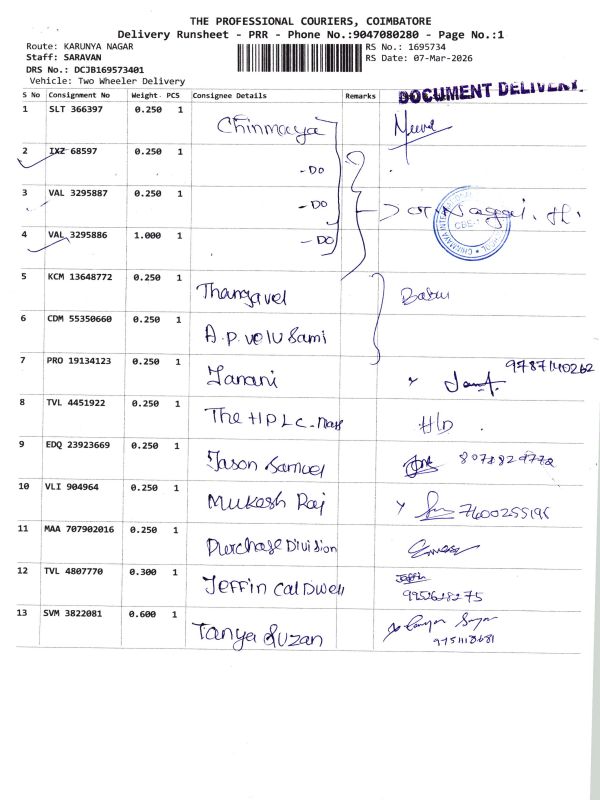 THE PROFESSIONAL COURIERS, COIMBATORE
Delivery Runsheet - PRR - Phone No.:9047080280 - Page No.:1
Route: KARUNYA NAGAR
RS No.: 1695734
Staff: SARAVAN
RS Date: 07-Mar-2026
DRS No.: DCJB169573401
Vehicle: Two Wheeler Delivery
DOCUMENT DELIVERY.
S No Consignment No Weight PCS Consignee Details Remarks
1 SLT 366397 0.250 1 Chinmaya
2 IXZ 68597 0.250 1 - DO
3 VAL 3295887 0.250 1 - DO
4 VAL 3295886 1.000 1 - DO
5 KCM 13648772 0.250 1 Thangavel Babu
6 CDM 55350660 0.250 1 A.P. velu Sami
7 PRO 19134123 0.250 1 Janani 9787140262
8 TVL 4451922 0.250 1 The HPLC- H/D .
9 EDQ 23923669 0.250 1 Jason Samuel
10 VLI 904964 0.250 1 Mukesh Raj 7600255196
11 MAA 707902016 0.250 1 Purchase Division
12 TVL 4807770 0.300 1 Jeffin Caldwell Jeffin
13 SVM 3822081 0.600 1 Tanya Suzan